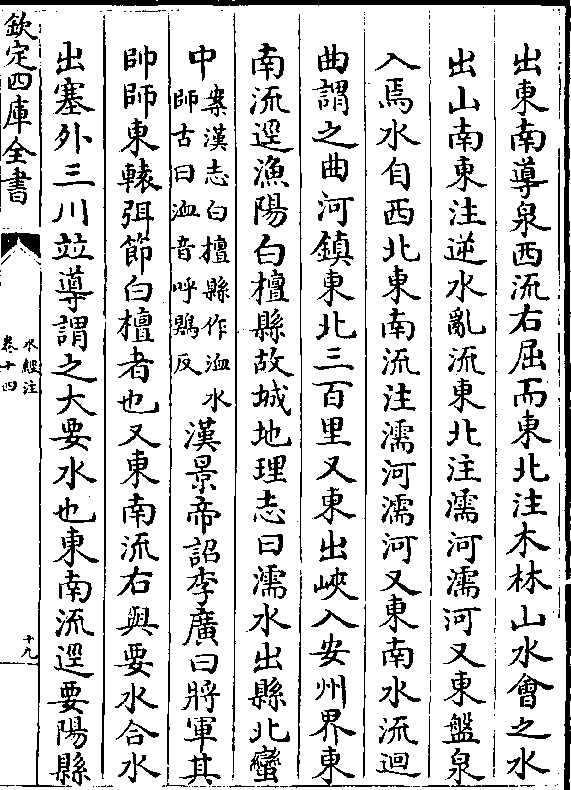 出東南導泉西流右屈而東北注木林山水會之水
出山南東注逆水亂流東北注濡河濡河又東盤泉
入焉水自西北東南流注濡河濡河又東南水流迴
曲謂之曲河鎮東北三百里又東出峽入安州界東
南流逕漁陽白檀縣故城地理志曰濡水出縣北蠻
中案漢志白檀縣作洫水師古曰洫音呼鶪反漢景帝詔李廣曰將軍其
帥師東轅弭節白檀者也又東南流右與要水合水
出塞外三川竝導謂之大要水也東南流逕要陽縣
欽定四庫全書
水經注
卷十四
十九